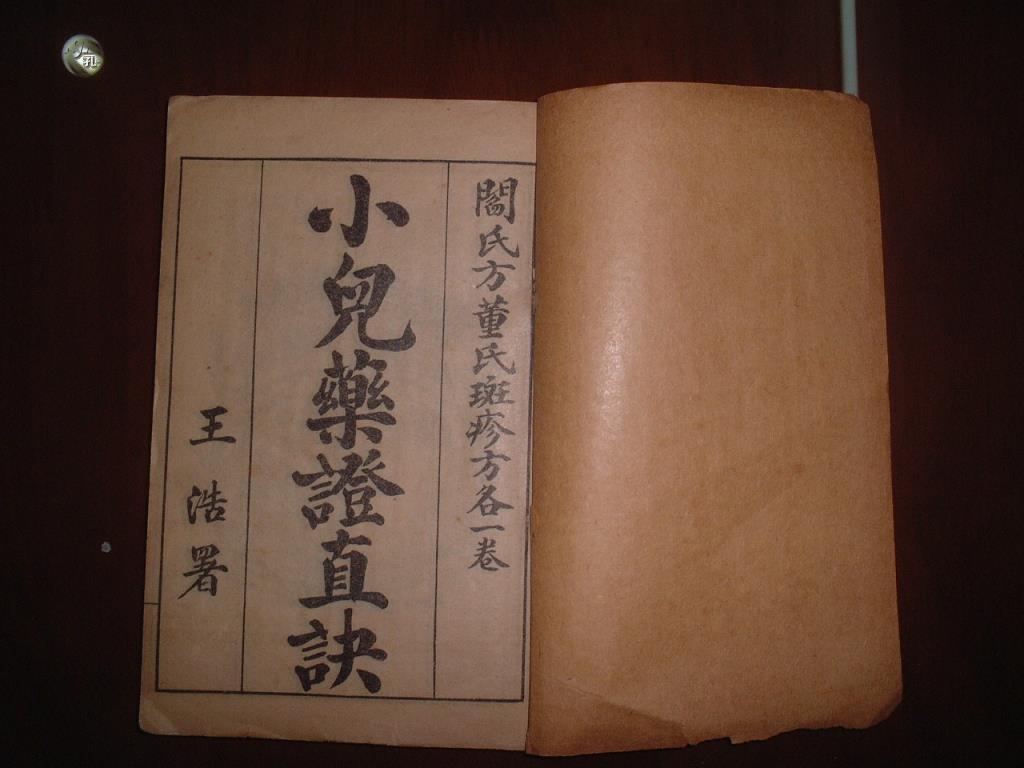 閻氏方董氏斑疹方各一卷
小兒藥證直訣
王浩署
孔